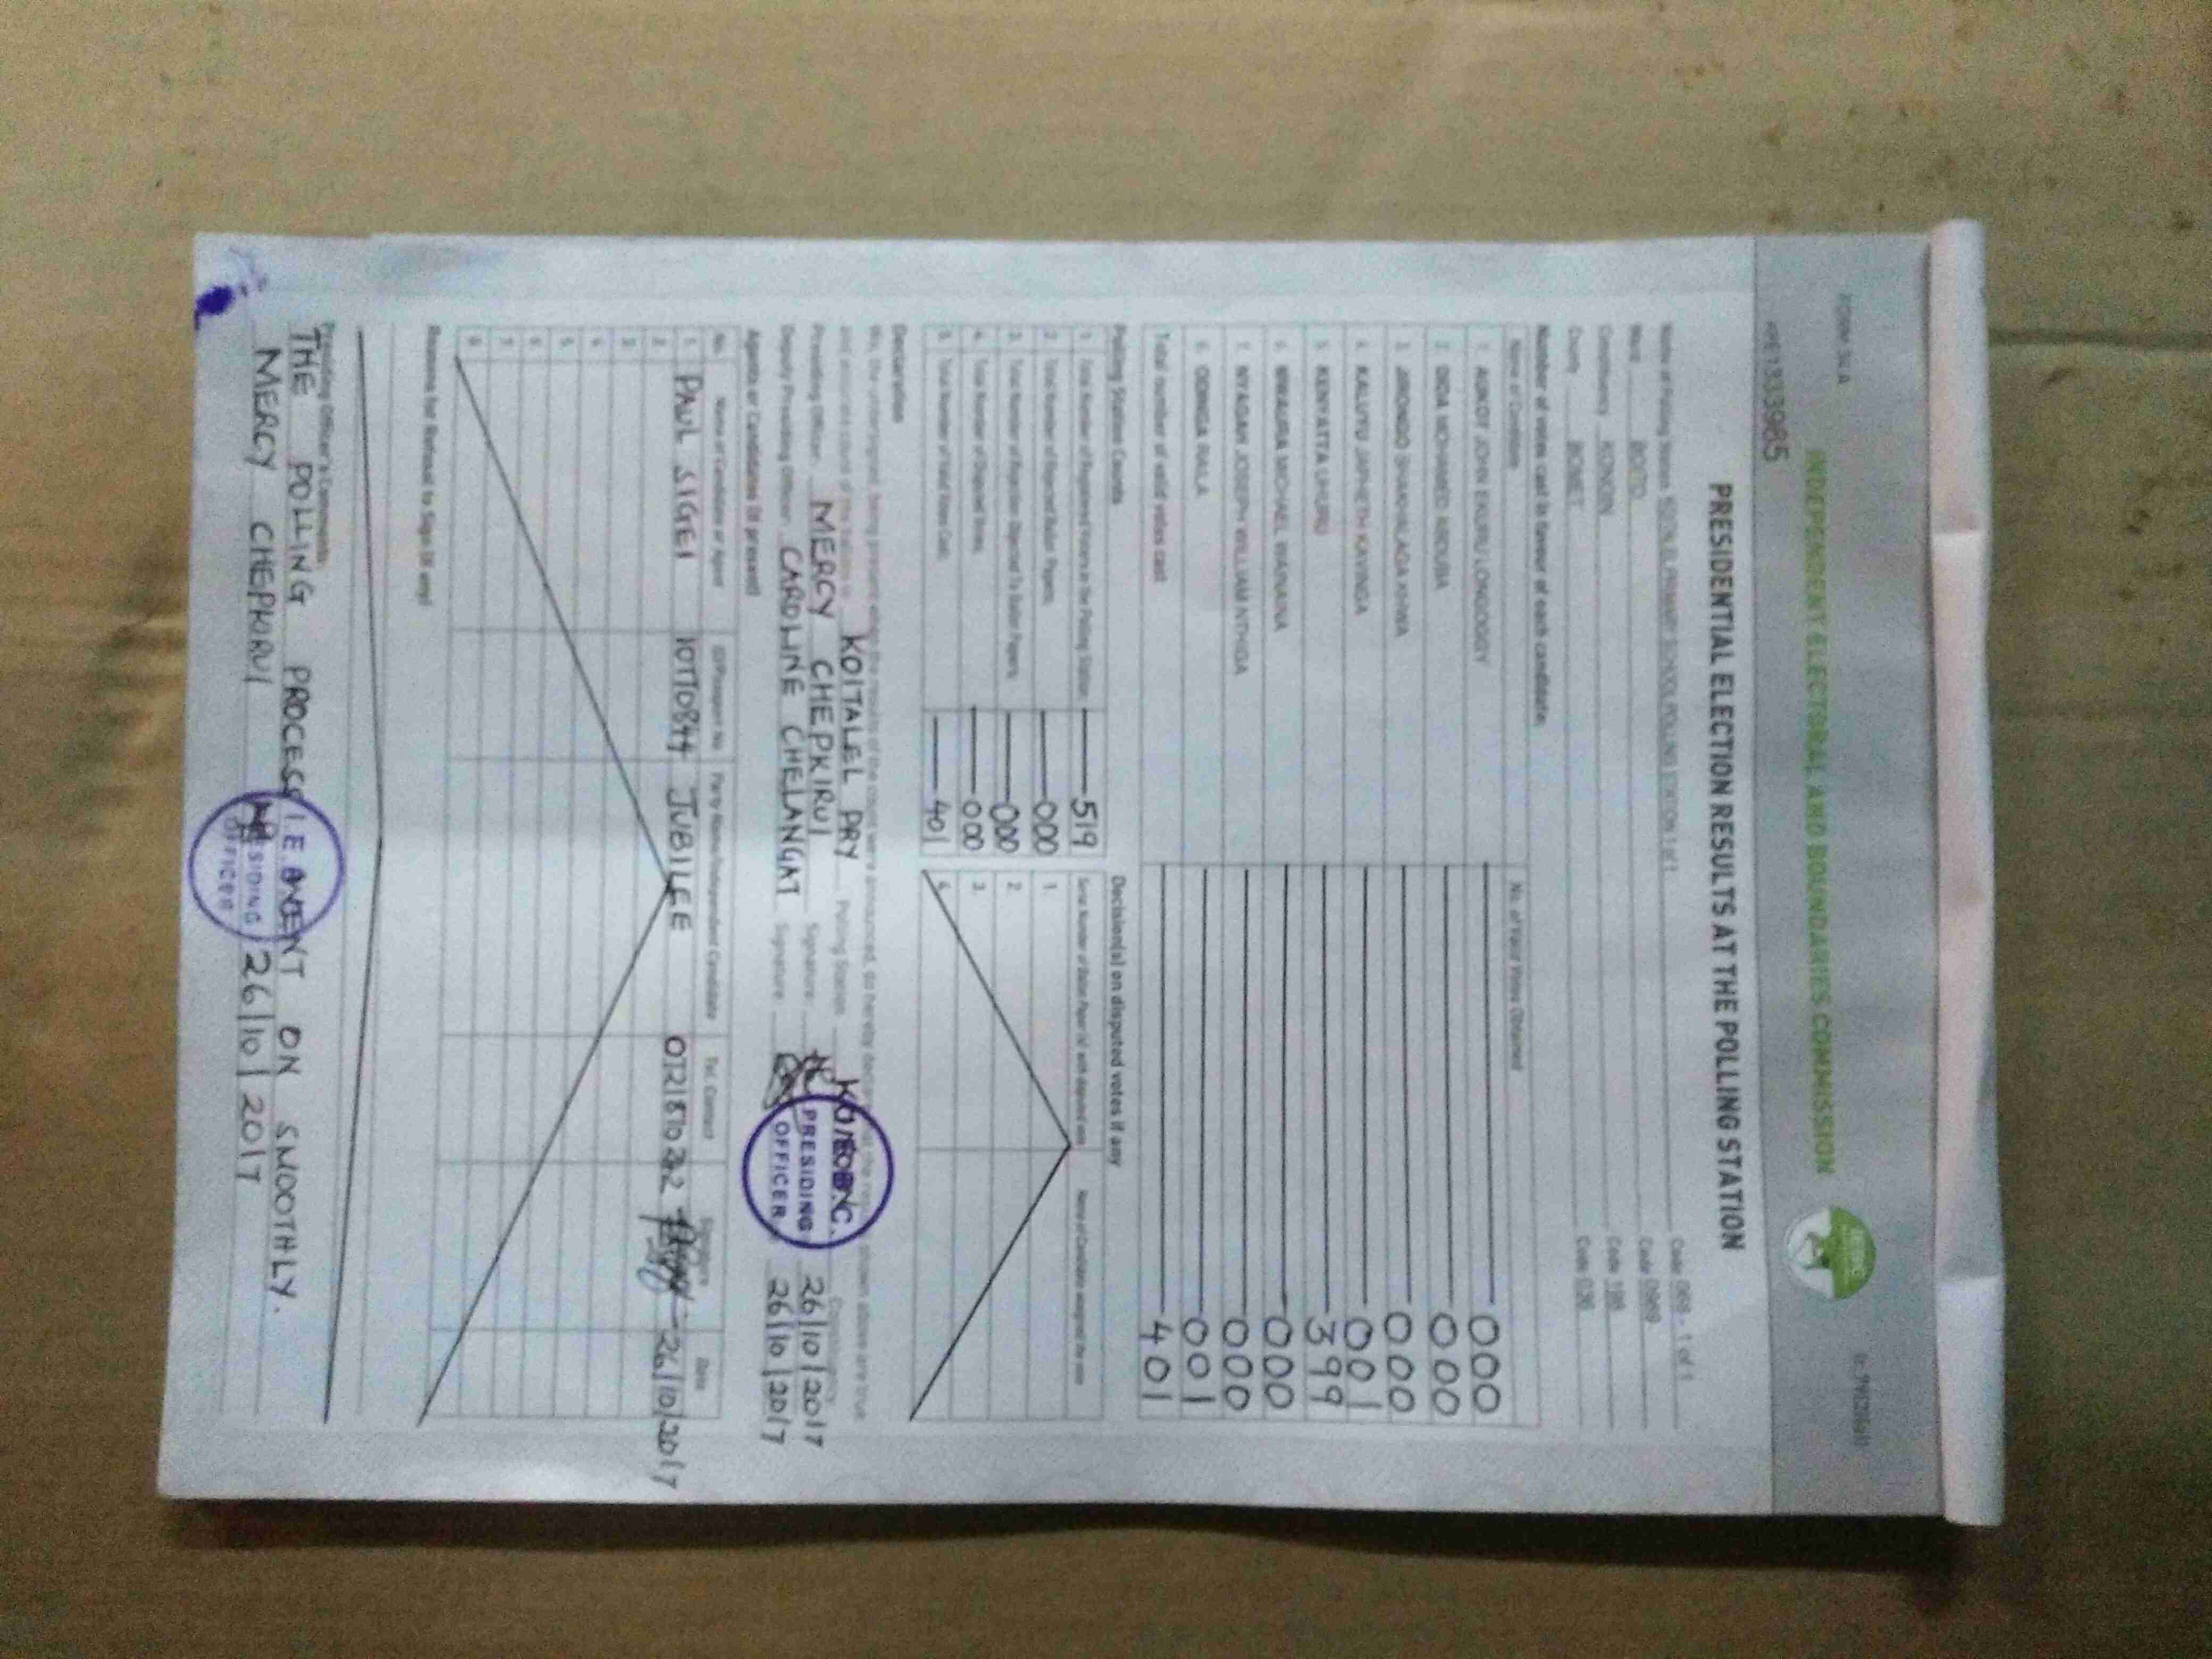 FORM 34 A
INDEPENDENT ELECTORAL AND BOUNDARIES COMMISSION
PRESIDENTIAL ELECTION RESULTS AT THE POLLING STATION
Name of Polling Station PRIMARY SCHOOL POLLING STATION 1 of 1 Code 009 - 1 of 1
Ward BOITO Code 0989
Constituency KONOIN Code 198
County BOMET Code 036
Number of votes cast in favour of each candidate:
Name of Candidate No. of Valid Votes Obtained
1. AUKOT JOHN EKURU LONGOGGY 000
2. DIDA MOHAMED ABDUBA 000
3. JIRONGO SHAKHALAGA KHWA 000
4. KALUYU JAPHETH KAVINGA 001
5. KENYATTA UHURU 399
6. MWAURA MICHAEL WAINAINA 000
7. NYAGAH JOSEPH WILLIAM NTHIGA 000
8. ODINGA RAILA 001
Total number of valid votes cast 401
Polling Station Counts
1. Total Number of Registered Voters in the Polling Station 519
2. Total Number of Rejected Ballot Papers 000
3. Total Number of Rejection Objected To Ballot Papers 000
4. Total Number of Disputed Votes 000
5. Total Number of Valid Votes Cast 401
Decision(s) on disputed votes if any
Serial Number of Ballot Paper (s) with disputed vote Name of Candidate assigned the vote
1.
2.
3.
4.
Declaration
We, the undersigned, being present when the results of the count were announced, do hereby declare shown above are true
and accurate count of the ballots in KOITALEL PRY Polling Station Constituency
Presiding Officer MERCY CHEPKIRUI Signature 26/10/2017
Deputy Presiding Officer CAROLINE CHELANGAT Signature 26/10/2017
PRESIDING
OFFICER
Agents or Candidates (if present)
No. Name of Candidate or Agent ID/Passport No Party Name/Independent Candidate Tel. Contact Signature Date
1. PAUL SIGEI JUBILEE 26/10/2017
2.
3.
4.
5.
6.
7.
8.
Reasons for Refusal to Sign (if any)
Presiding Officer's Comments:
THE POLLING PROCESS WENT ON SMOOTHLY.
MERCY CHEPKIRUI 26/10/2017
OFFICER